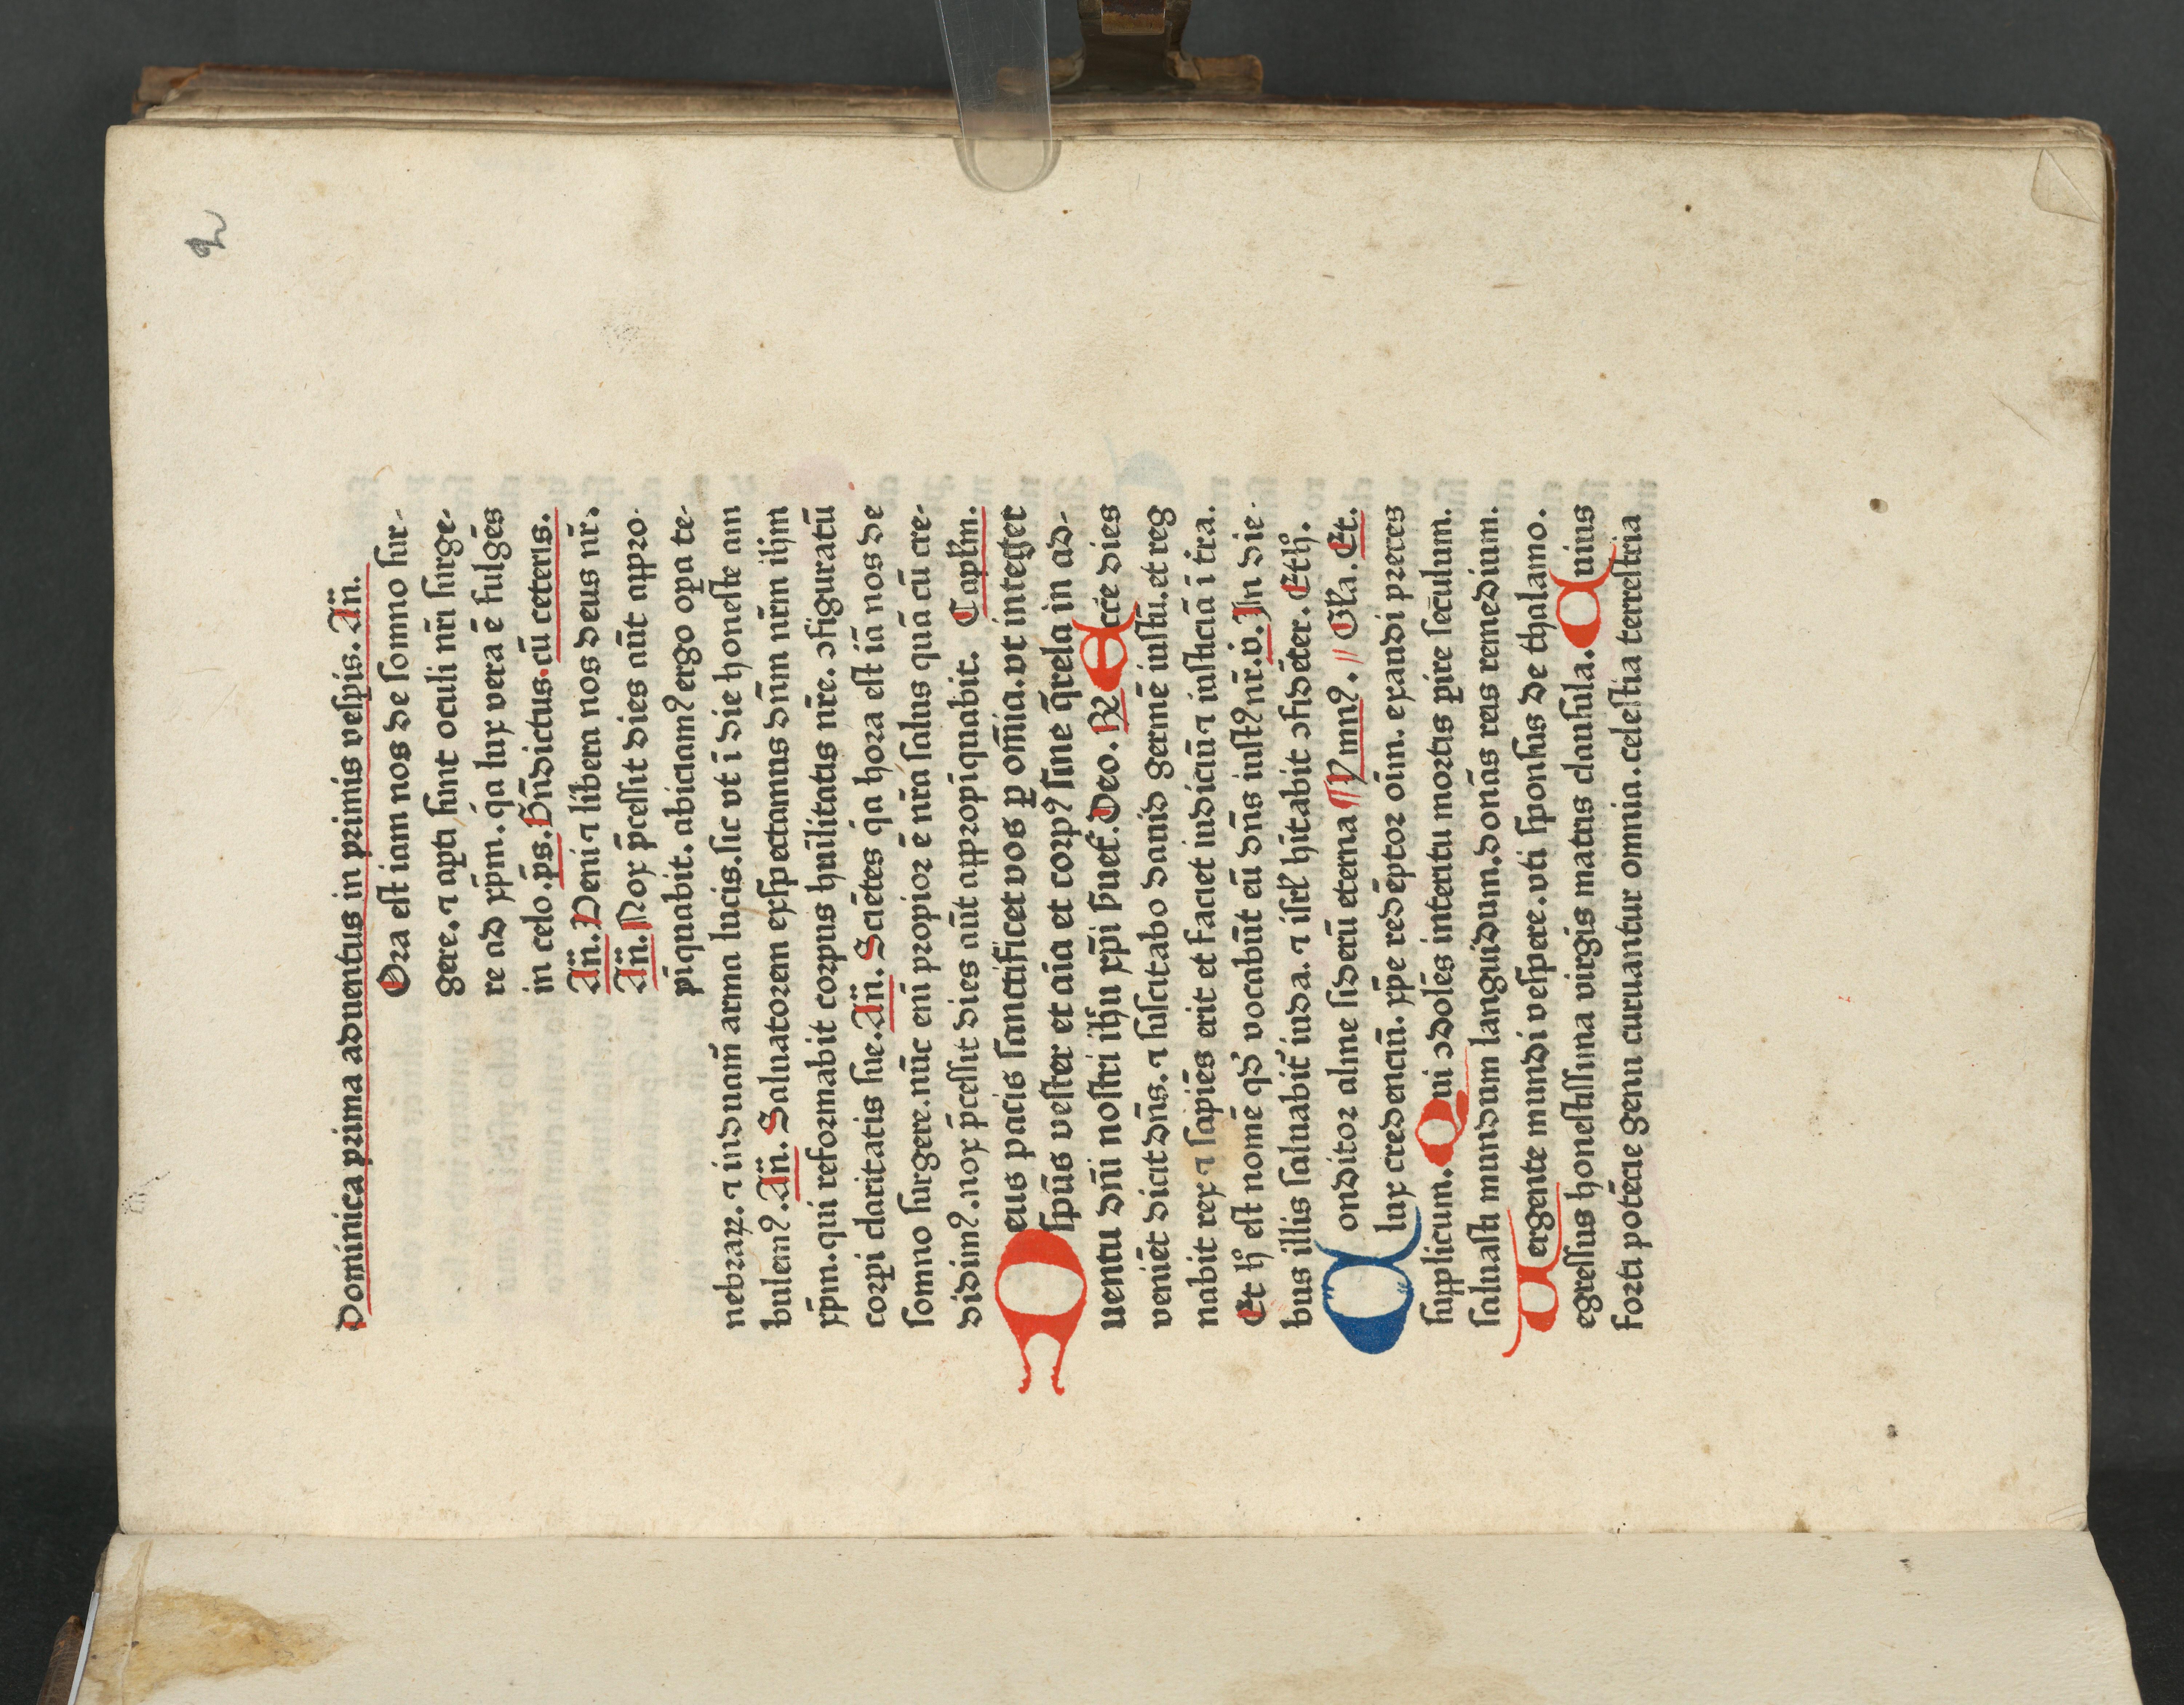 2
Dominica prima aduentus in primis vespis. Añ.
Ora est iam nos de somno sur-
gere. ⁊ apti sunt oculi nr̄i surge-
re ad xp̄m. q́a lux vera ē fulgēs
in celo. p̄s. Bn̄dictus. cū ceteris.
Añ. Veni ⁊ libera nos deus nr̄.
Añ. Nox p̄cessit dies aūt appro-
piquabit. abiciamꝰ ergo oꝑa te-
nebraꝝ. ⁊ induam̄ arma lucis. sic vt ī die honeste am
bulemꝰ. Añ. Saluatorem exspectamus dn̄m nr̄m ihm
xp̄m. qui reformabit corpus hūilitatis nr̄e. ꝯfiguratū
corꝑi claritatis sue. Añ. Sciētes q́a hora est iā nos de
somno surgere. nūc eni̅ propior ē nr̄a salus quā cū cre-
didimꝰ. nox p̄cessit dies aūt appropīquabit. Capl̄m.
Deus pacis sanctificet vos ꝑ om̄ia. vt integer
sp̄us vester et aīa et corpꝰ sine q̄rela in ad-
uentu dn̄i nostri ihu xp̄i ẜuet̄. Deo. ℞ Ecce dies
veniēt dicit dn̄s. ⁊ suscitabo dauid germē iustū. et reg
nabit rex ⁊ sapiēs erit et faciet iudiciū ⁊ iusticiā ī t̄ra.
Et hͦ est nomē qd̛ vocabūt eū dn̄s iustꝰ nr̄. v̊. In die-
bus illis saluabit̄ iuda. ⁊ isrl̄ hītabit ꝯfidēter. Et hͦ.
Conditor alme siderū eterna ¶ Ymnꝰ. // Gl̄a. Et.
lux credenciū. xp̄e redēptor oīm. exaudi preces
supplicum. Qui ꝯdolēs interitu mortis ꝑire sec̄ulum.
saluasti mundum languidum. donās reis remedium.
Uergente mundi vespere. vti sponsus de thalamo.
egressus honestissima virgis matris clausula. Cuius
forti potēcie genu curuantur omnia. celestia terrestria